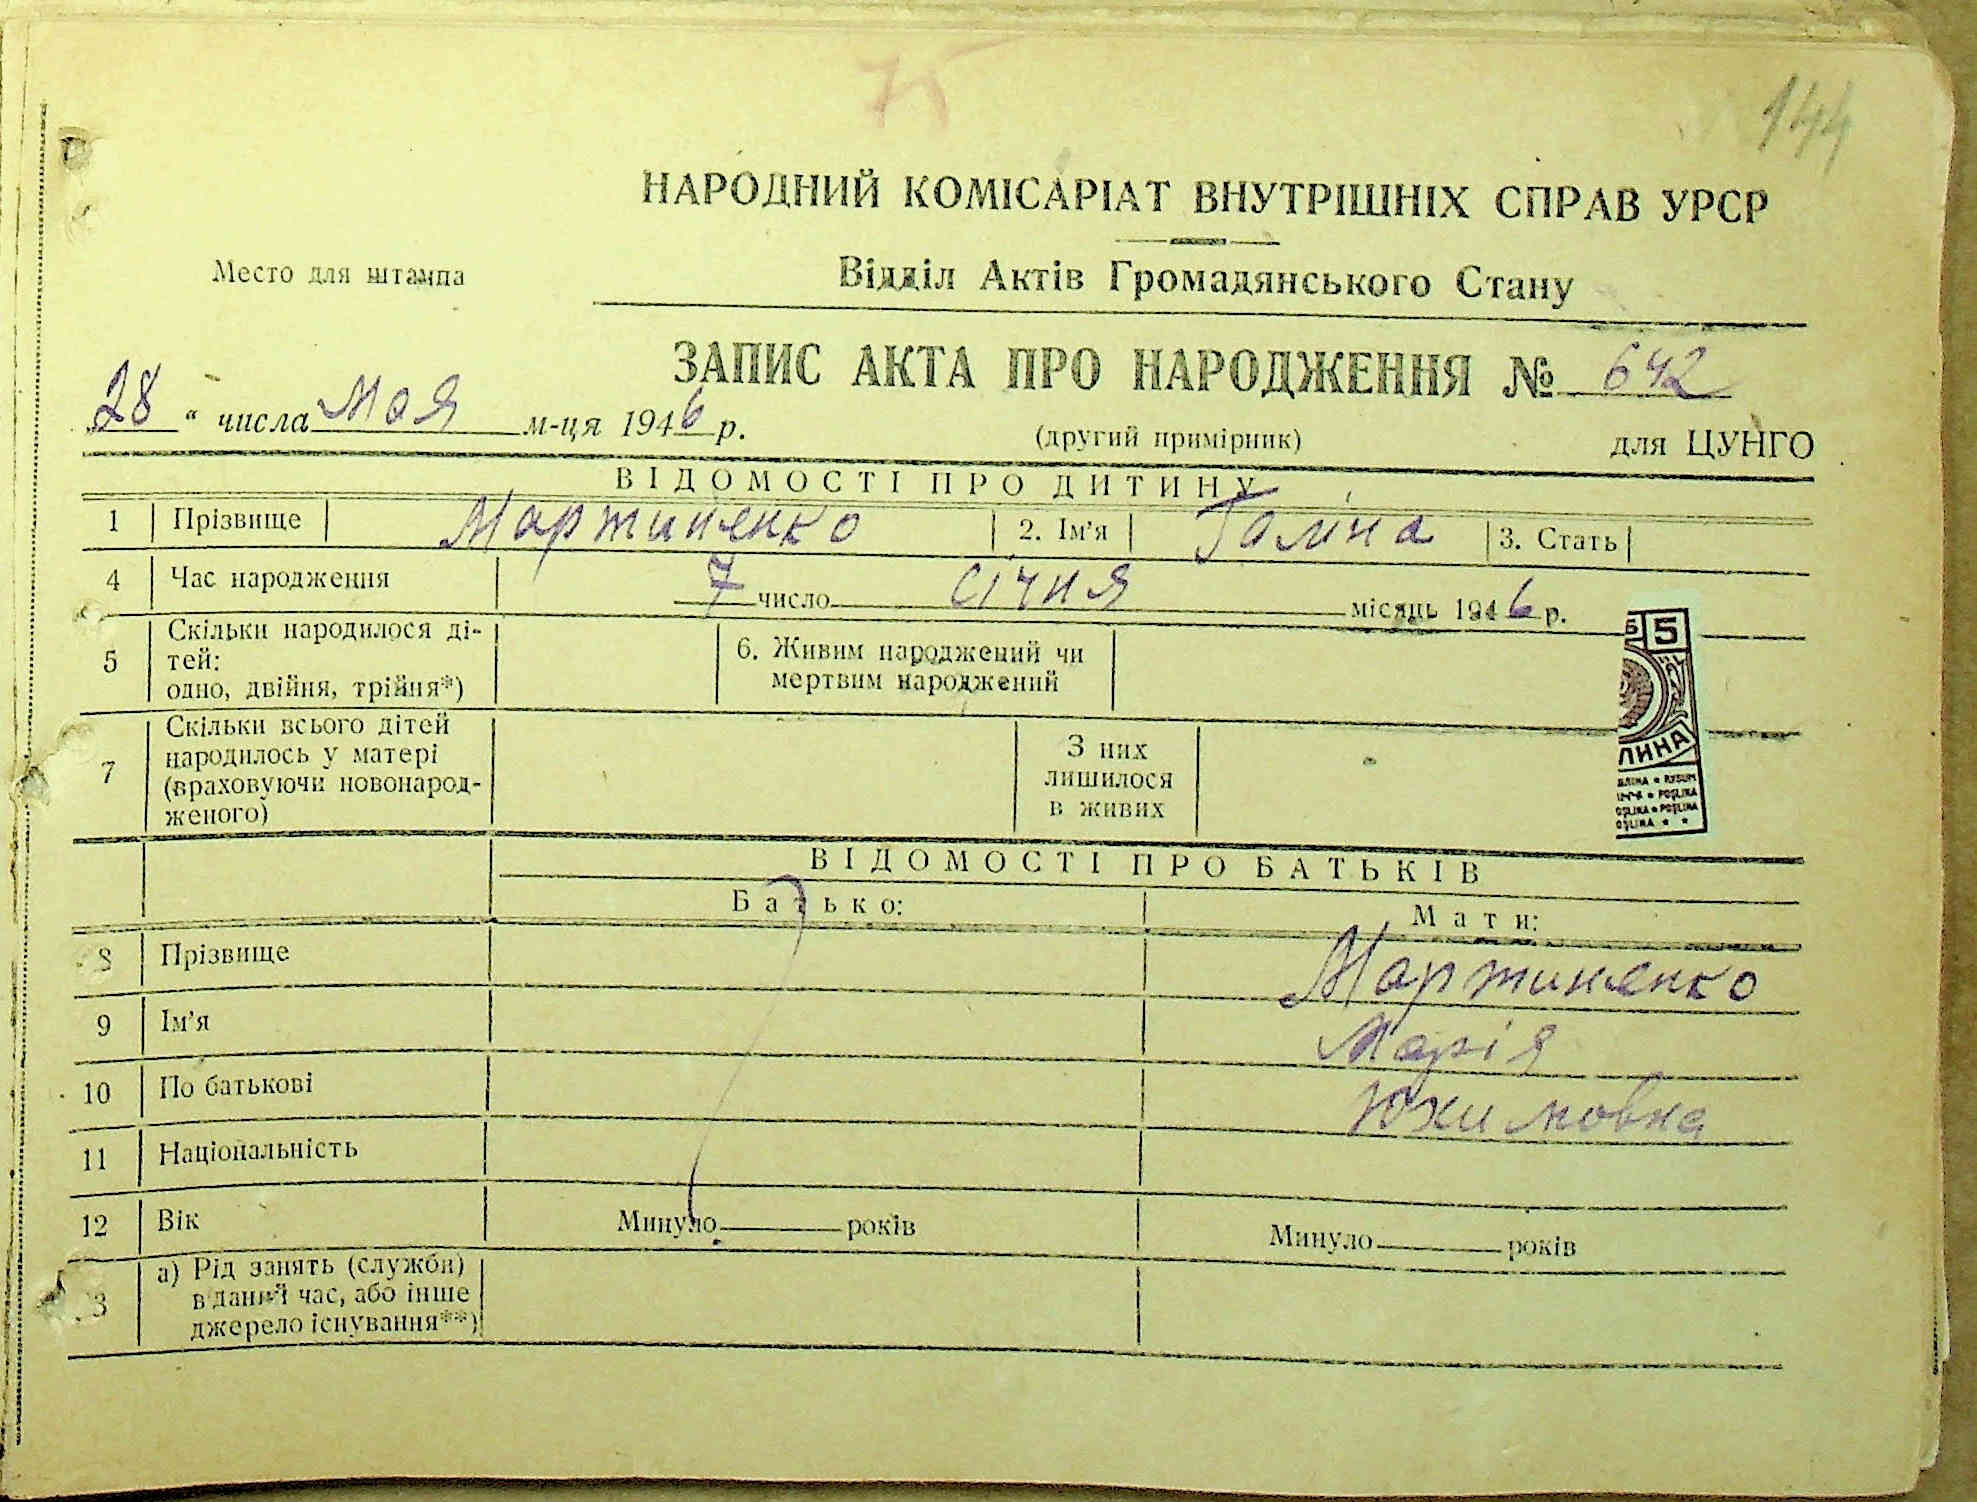 75
144
НАРОДНИЙ КОМІСАРІАТ ВНУТРІШНІХ СПРАВ УРСР
Место для штампа
Відділ Актів Громадянського Стану
ЗАПИС АКТА ПРО НАРОДЖЕННЯ № 642
28 " числа мая м-ця 1946 р.
(другий примірник)
для ЦУНГО
ВІДОМОСТІ ПРО ДИТИНУ
1 Прізвище Мартиненко 2. Ім'я Галіна 3. Стать
4 Час народження 7 число січня місяць 1946 р.
5 Скільки народилося ді-
тей:
одно, двійня, трійня*)
6. Живим народжений чи
мертвим народжений
7 Скільки всього дітей
народилось у матері
(враховуючи новонарод-
женого)
З них
лишилося
в живих
5
ЛИНА
ВІДОМОСТІ ПРО БАТЬКІВ
Батько:
Мати:
8 Прізвище Мартиненко
9 Ім'я Марія
10 По батькові Юхимовна
11 Національність
12 Вік Минуло років Минуло років
3 а) Рід занять (служби)
в даний час, або інше
джерело існування**)